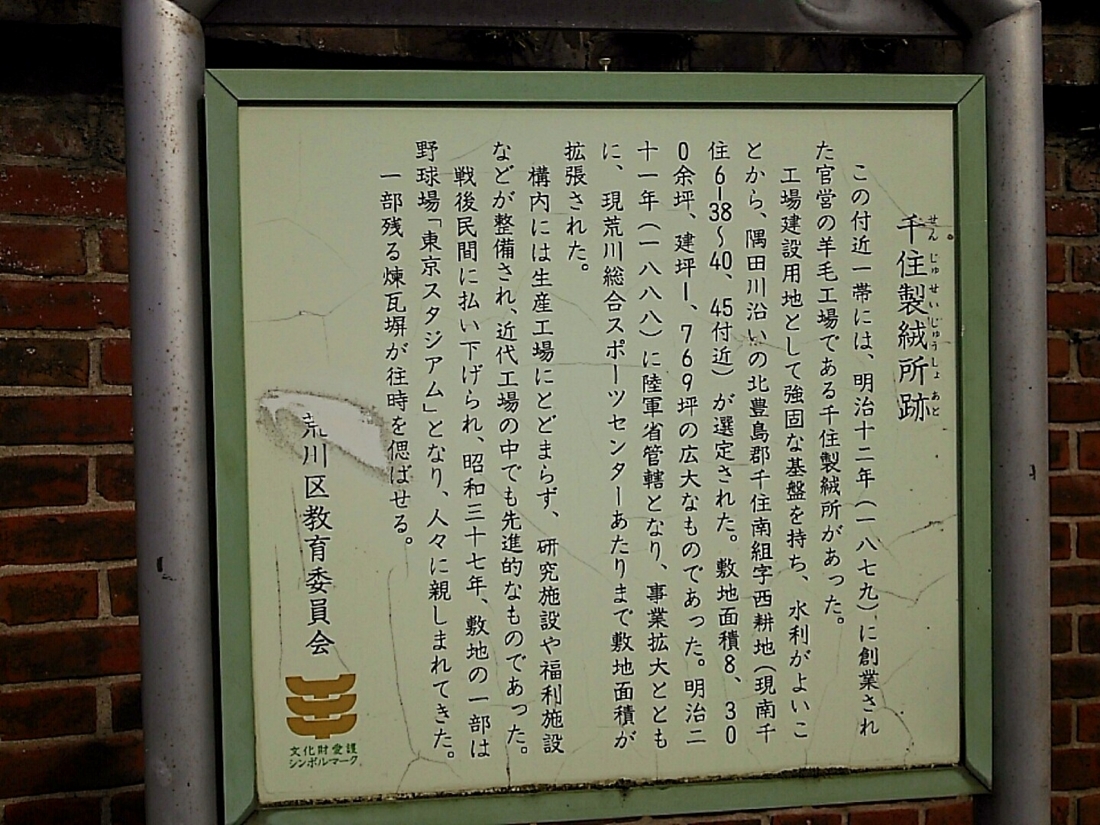 千住製絨所跡
せんじゅせいじゅうしょあと
この付近一帯には、明治十二年（一八七九）に創業され
た官営の羊毛工場である千住製絨所があった。
工場建設用地として強固な基盤を持ち、水利がよいこ
とから、隅田川沿いの北豊島郡千住南組字西耕地（現南千
住6−38〜40、45付近）が選定された。敷地面積8、30
0余坪、建坪1、769坪の広大なものであった。明治二
十一年（一八八八）に陸軍省管轄となり、事業拡大ととも
に、現荒川総合スポーツセンターあたりまで敷地面積が
拡張された。
構内には生産工場にとどまらず、研究施設や福利施設
などが整備され、近代工場の中でも先進的なものであった。
戦後民間に払い下げられ、昭和三十七年、敷地の一部は
野球場「東京スタジアム」となり、人々に親しまれてきた。
一部残る煉瓦塀が往時を偲ばせる。
荒川区教育委員会
文化財愛護
シンボルマーク